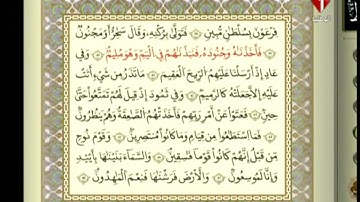 فِرْعَوْنَ بِسُلْطَٰنٍ مُّبِينٍ ۝ فَتَوَلَّىٰ بِرُكْنِهِۦ وَقَالَ سَٰحِرٌ أَوْ مَجْنُونٌ
۝ فَأَخَذْنَٰهُ وَجُنُودَهُۥ فَنَبَذْنَٰهُمْ فِى ٱلْيَمِّ وَهُوَ مُلِيمٌ ۝ وَفِى
عَادٍ إِذْ أَرْسَلْنَا عَلَيْهِمُ ٱلرِّيحَ ٱلْعَقِيمَ ۝ مَا تَذَرُ مِن شَىْءٍ أَتَتْ
عَلَيْهِ إِلَّا جَعَلَتْهُ كَٱلرَّمِيمِ ۝ وَفِى ثَمُودَ إِذْ قِيلَ لَهُمْ تَمَتَّعُوا۟ حَتَّىٰ
حِينٍ ۝ فَعَتَوْا۟ عَنْ أَمْرِ رَبِّهِمْ فَأَخَذَتْهُمُ ٱلصَّٰعِقَةُ وَهُمْ يَنظُرُونَ
۝ فَمَا ٱسْتَطَٰعُوا۟ مِن قِيَامٍ وَمَا كَانُوا۟ مُنتَصِرِينَ ۝ وَقَوْمَ نُوحٍ
مِّن قَبْلُ إِنَّهُمْ كَانُوا۟ قَوْمًا فَٰسِقِينَ ۝ وَٱلسَّمَآءَ بَنَيْنَٰهَا بِأَيْي۟دٍ
وَإِنَّا لَمُوسِعُونَ ۝ وَٱلْأَرْضَ فَرَشْنَٰهَا فَنِعْمَ ٱلْمَٰهِدُونَ ۝